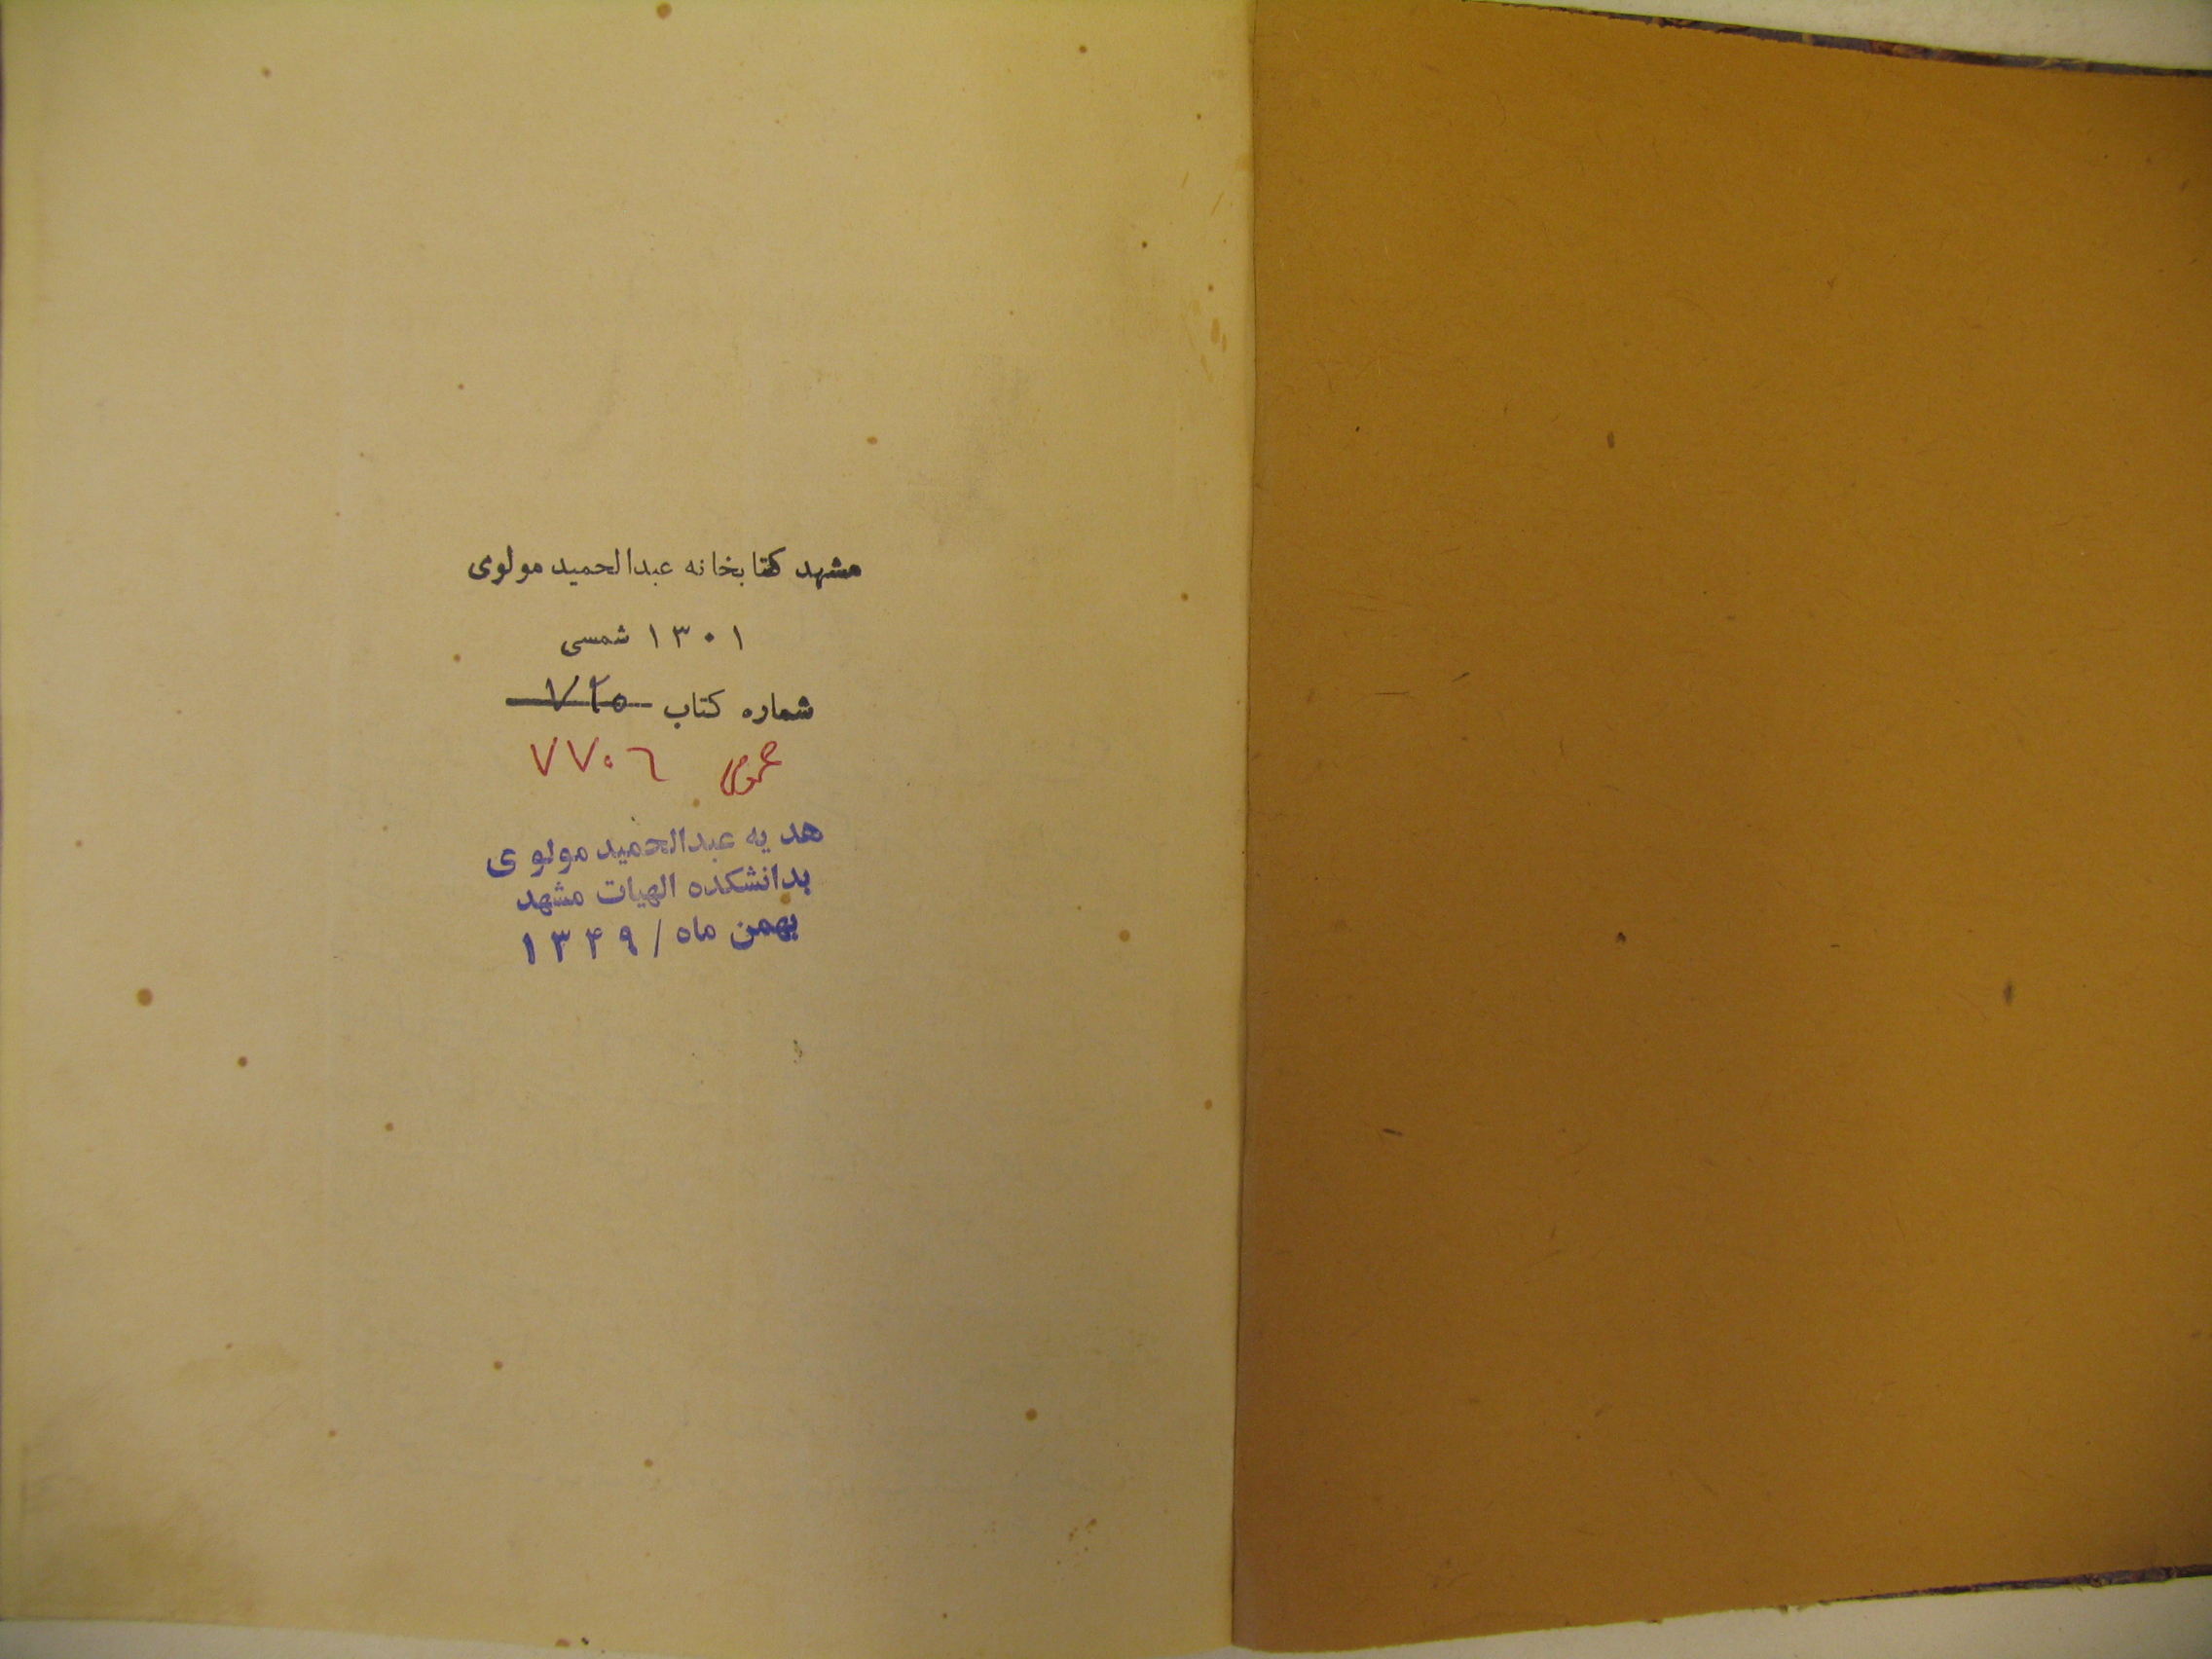 مشهد کتابخانه عبدالحمید مولوی
۱۳۰۱ شمسی
شماره کتاب ۷۲۵
عمومی ۷۷۰۶
هدیه عبدالحمید مولوی
بدانشکده الهیات مشهد
بهمن ماه / ۱۳۴۹